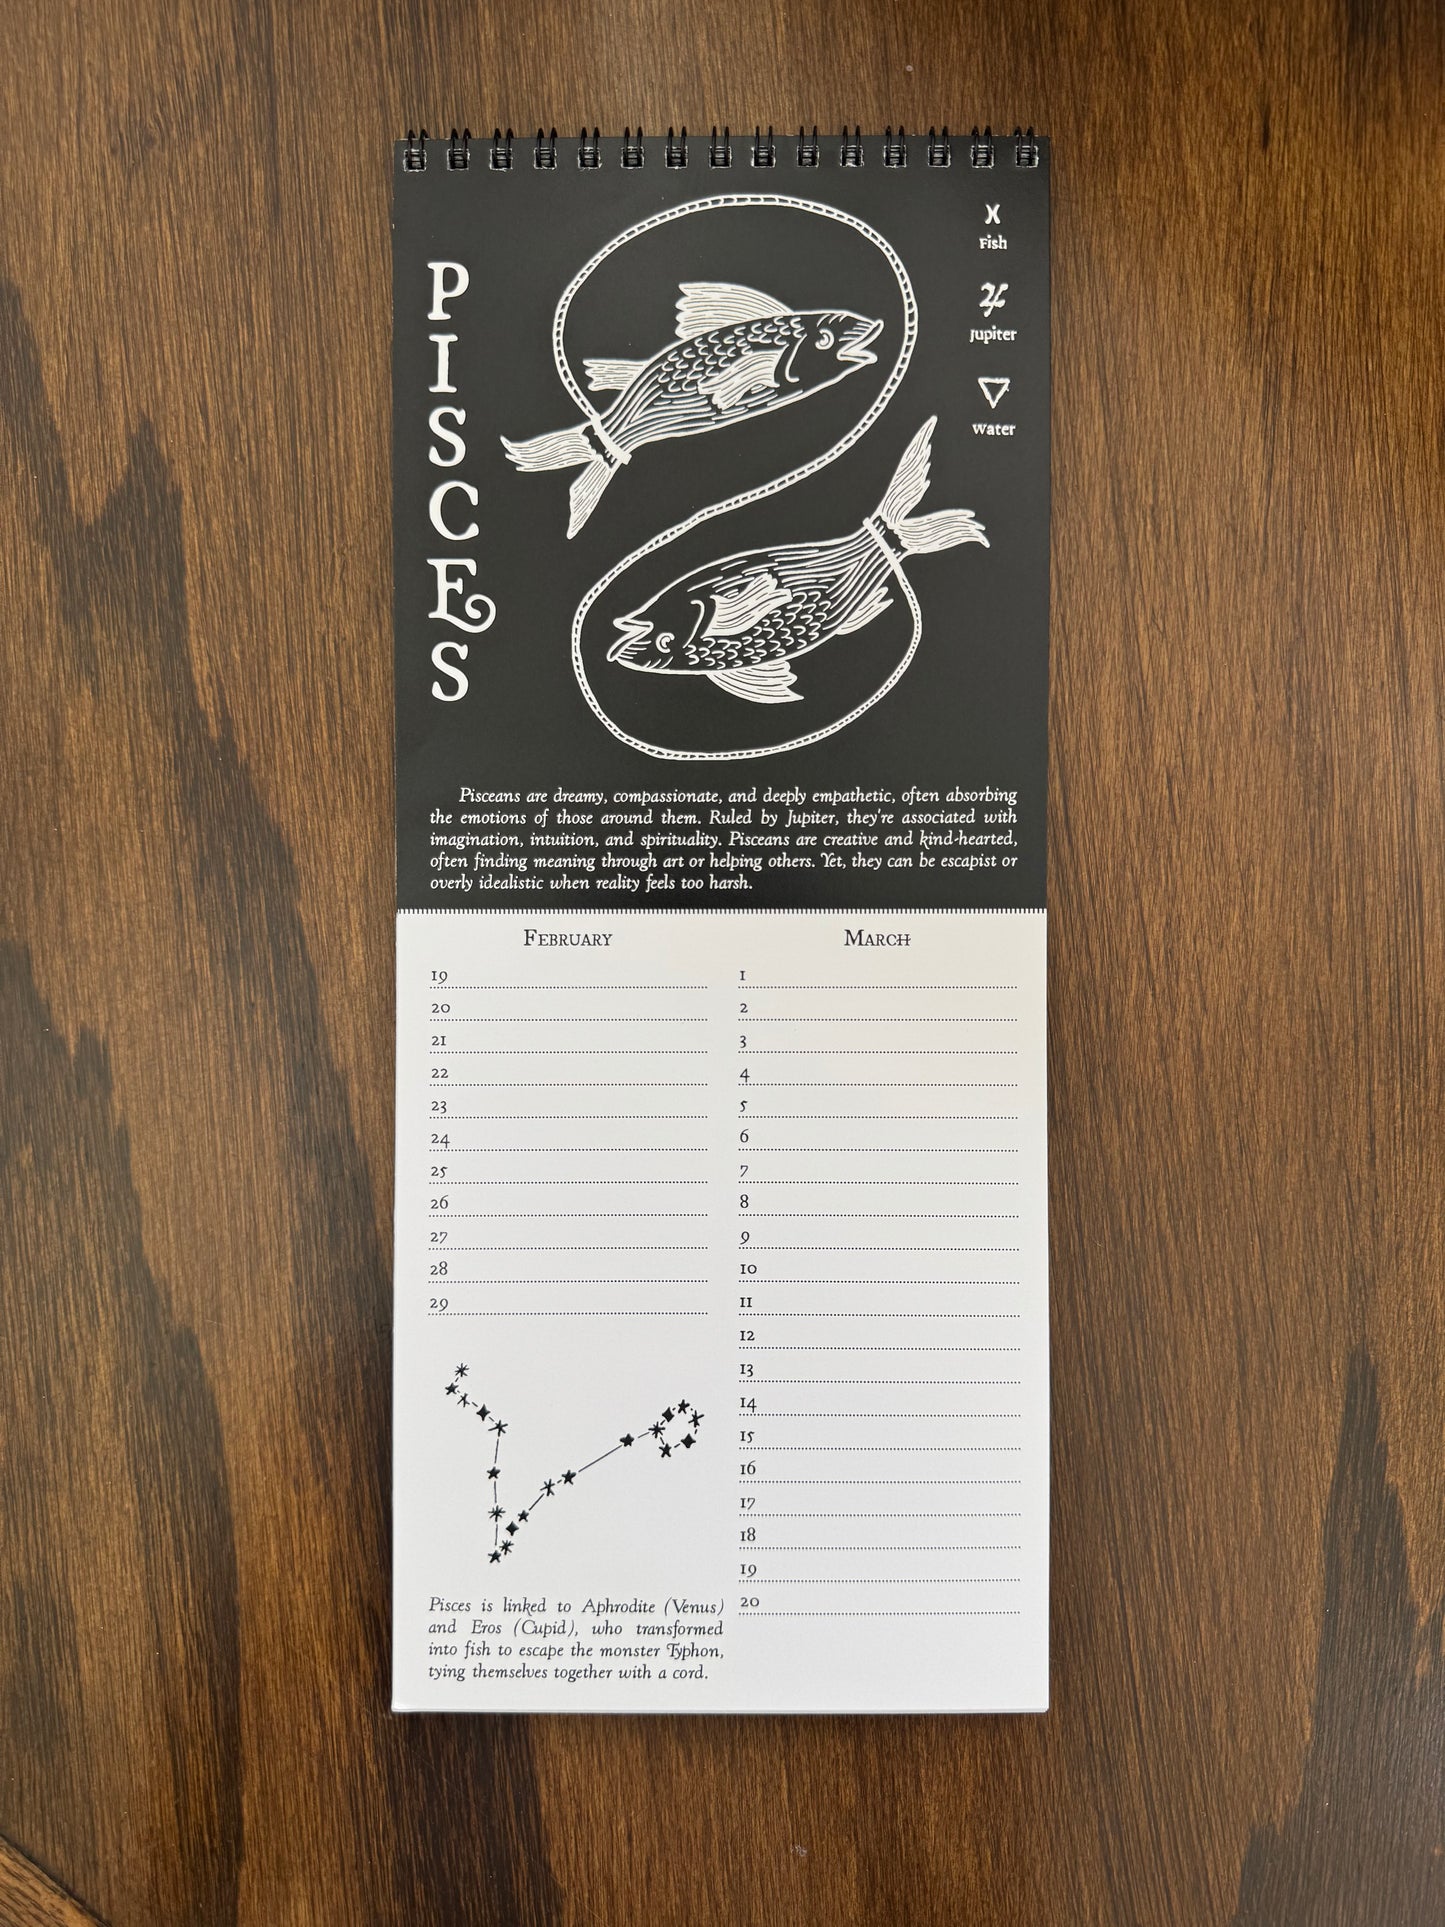 PISCES
Fish
Jupiter
Water
Pisceans are dreamy, compassionate, and deeply empathetic, often absorbing
the emotions of those around them. Ruled by Jupiter, they're associated with
imagination, intuition, and spirituality. Pisceans are creative and kind-hearted,
often finding meaning through art or helping others. Yet, they can be escapist or
overly idealistic when reality feels too harsh.
February
19
20
21
22
23
24
25
26
27
28
29
Pisces is linked to Aphrodite (Venus)
and Eros (Cupid), who transformed
into fish to escape the monster Typhon,
tying themselves together with a cord.
March
1
2
3
4
5
6
7
8
9
10
11
12
13
14
15
16
17
18
19
20